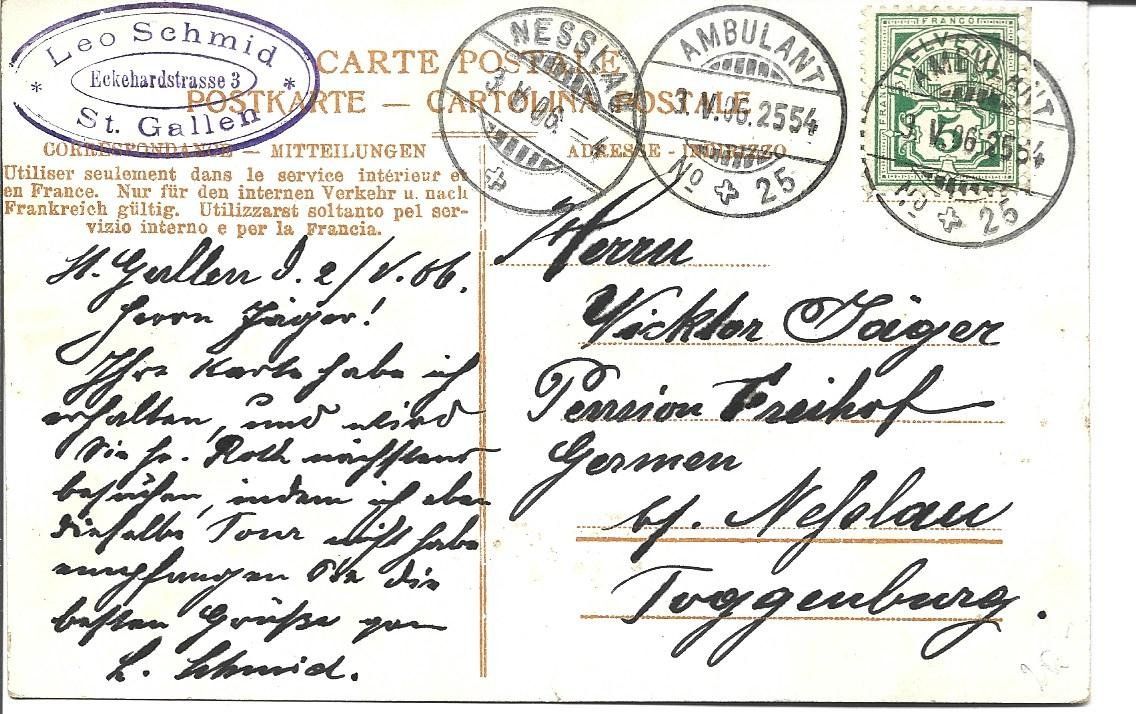 Leo Schmid
* Eckehardstrasse 3 *
St. Gallen
CARTE POSTALE
POSTKARTE — CARTOLINA POSTALE
CORRESPONDANCE — MITTEILUNGEN
ADRESSE - INDIRIZZO
Utiliser seulement dans le service intérieur et
en France. Nur für den internen Verkehr u. nach
Frankreich gültig. Utilizzarsi soltanto pel ser-
vizio interno e per la Francia.
NESSLAU
3.V.06.–4
AMBULANT
3.V.06.2554
No 25
FRANCO
HELVETIA
5
AMBULANT
3.V.06.2554
No 25
St. Gallen d. 2/V.06.
Herrn Jäger!
Ihre Karte habe ich
erhalten, und wird
Sie Hr. Roth nächstens
besuchen, indem ich eben
dieselbe Tour nicht habe
empfangen Sie die
besten Grüße von
L. Schmid.
Herrn
Vicktor Jäger
Pension Freihof
Germen
bf. Neßlau
Toggenburg.